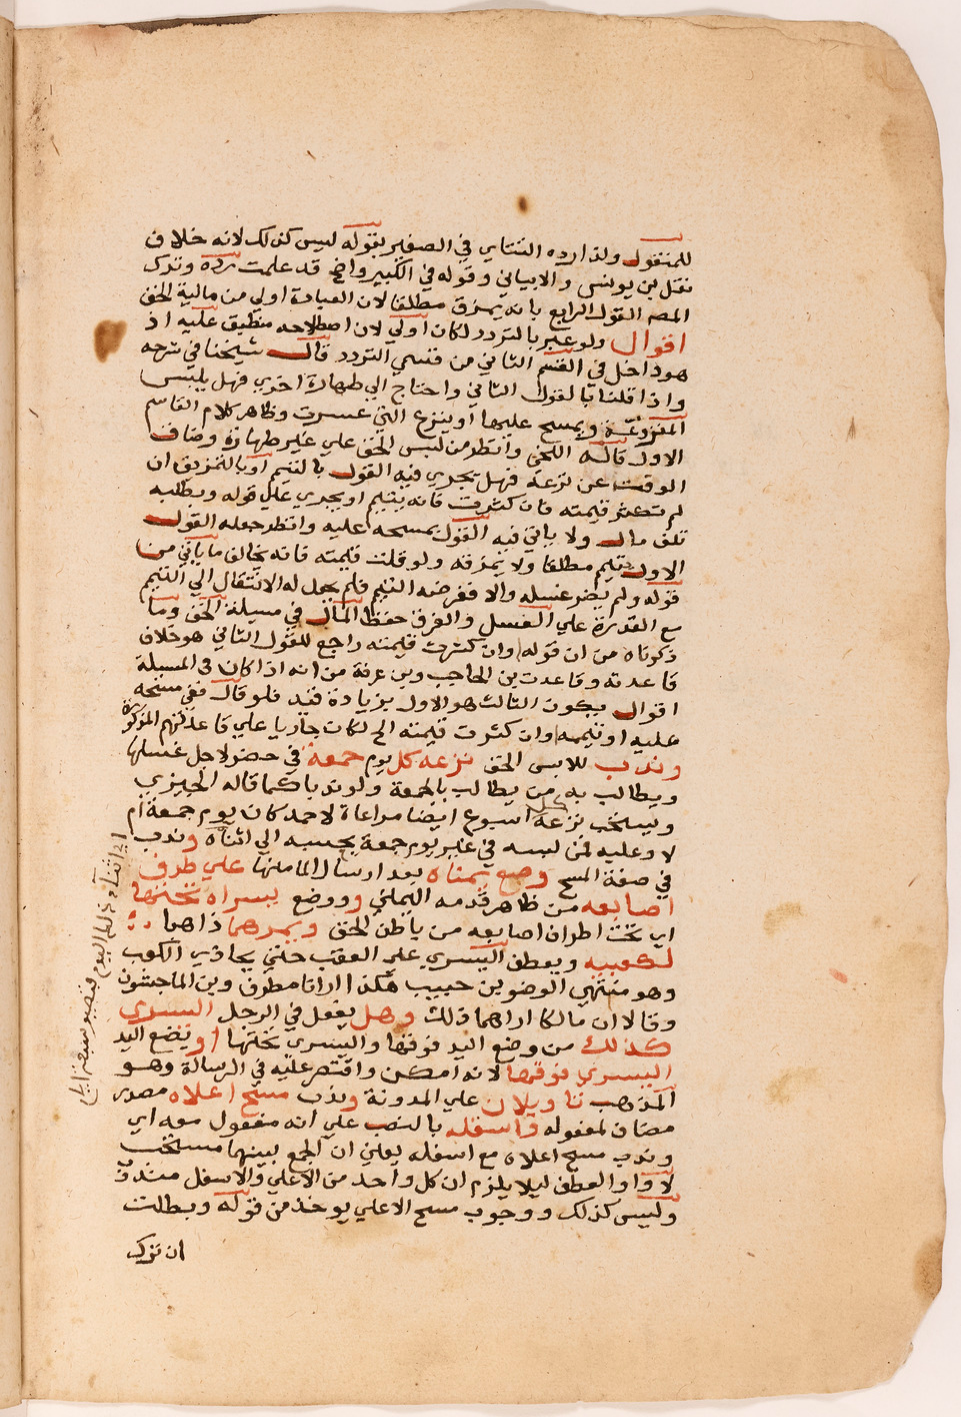 للمنقول ولذا رده التتاي في الصغير بقوله ليس كذلك لانه خلاف
نقل بن يونس والابياني وقوله في الكبير واضح قد علمت رده وترك
المص القول الرابع بانه يمزق مطلقا لان العبادة اولي من مالية الخف
اقوال ولو عبر بالتردد لكان اولي لان اصطلاحه منطبق عليه اذ
هو داخل في القسم الثاني من قسمي التردد قال شيخنا في شرحه
واذا قلنا بالقول الثاني واحتاج الي طهارة اخري فهل يلبس
المنزوعة ويمسح عليها او ينزع التي عسرت وظاهر كلام القاسم
الاول قاله اللخمي وانظر من لبس الخف علي غير طهارة وضاق
الوقت عن نزعه فهل يجري فيه القول بالتيمم او بالتمزيق ان
لم تكثر قيمته فان كثرت فانه يتيمم او يجري علي قوله وبطلبه
تلف مال ولا ياتي فيه القول بمسحه عليه وانظر جعله القول
الاول يتيمم مطلقا ولا يمزقه ولو قلت قيمته فانه يخالف ما ياتي من
قوله ولم يضر غسله والا ففرضه التيمم فلم يجعل له الانتقال الي التيمم
مع القدرة علي الغسل والفرق حفظ المال في مسيلة الخف وما
ذكرناه من ان قوله وان كثرت قيمته راجع للقول الثاني هو خلاف
قاعدته وقاعدت بن الحاجب وبن عرفة من انه اذا كان في المسيلة
اقوال يكون الثالث هو الاول بزيادة قيد فلو قال ففي مسحه
عليه او تيممه وان كثرت قيمته الخ لكان جاريا علي قاعدتهم المذكورة
وندب للابس الخف نزعه كل يوم جمعة في حضر لاجل غسلها
ويطالب به من يطالب بالجمعة ولو ندبا كما قاله الجيزي
ويستحب نزعه كل اسبوع ايضا مراعاة لاحمد كان يوم جمعة ام
لا وعليه فمن لبسه في غير يوم جمعة يحسبه الي اثناه وندب
في صفة المسح وضع يمناه بعد ارسال الما منها علي طرف
اصابعه من ظاهر قدمه اليمني ووضع يسراه تحتها
اي تحت اطراف اصابعه من باطن الخف ويمرهما ذاهبا
لكعبيه ويعطف اليسري علي العقب حتي يحاذي الكعب
وهو منتهي الوضو بن حبيب هكذا ارانا مطرف وبن الماجشون
وقالا ان مالكا اراهما ذلك وهل يفعل في الرجل اليسري
كذلك من وضع اليد فوقها واليسري تحتها او يضع اليد
اليسري فوقها لانه امكن واقتصر عليه في الرسالة وهو
المذهب تاويلان علي المدونة وندب مسح اعلاه مصدر
مضاف لمفعوله واسفله بالنصب علي انه مفعول معه اي
وندب مسح اعلاه مع اسفله يعني ان الجمع بينهما مستحب
لا واو العطف ليلا يلزم ان كل واحد من الاعلي والاسفل مندوب
وليس كذلك ووجوب مسح الاعلي يوخذ من قوله وبطلت
ان ترك